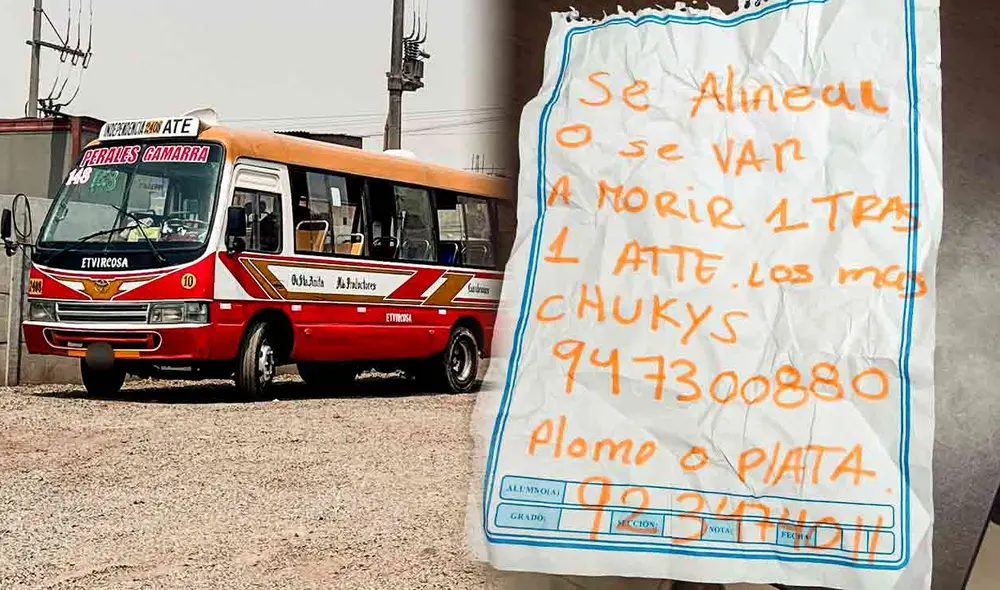 INDEPENDENCIA 2408 ATE
PERALES GAMARRA
148
ETVIRCOSA
2408
10
Ov. Sta Anita
Mo. Productores
ETVIRCOSA
Se Alinean
O se VAN
A MORIR 1 TRAS
1 ATTE. Los mas
CHUKYS
947300880
Plomo o PlATA.
ALUMNO(A)
GRADO:
SECCIÓN:
NOTA:
FECHA:
923474011